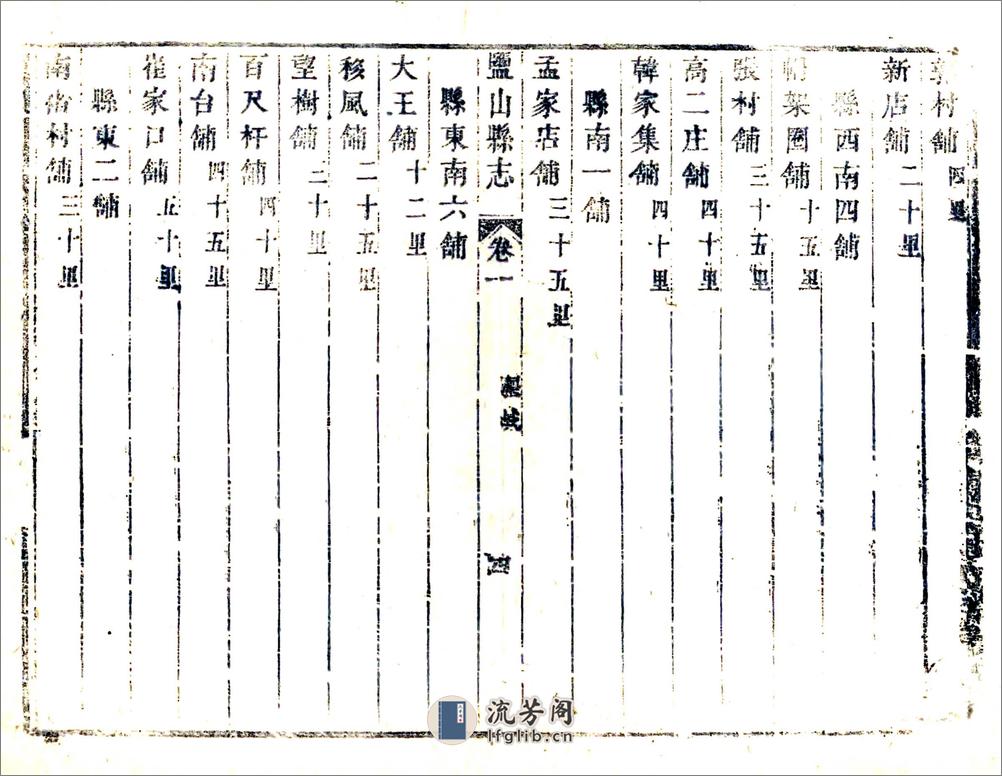 村舖四里
新店舖二十里
縣西南四舖
架圈舖十五里
張村舖三十五里
高二庄舖四十里
韓家集舖四十里
縣南一舖
孟家店舖三十五里
鹽山縣志
卷一
疆域
四
縣東南六舖
大王舖十二里
移風舖二十五里
望樹舖三十里
百尺杆舖四十里
南台舖四十五里
崔家口舖五十里
縣東二舖
南村舖三十里
流芳阁
lfglib.cn